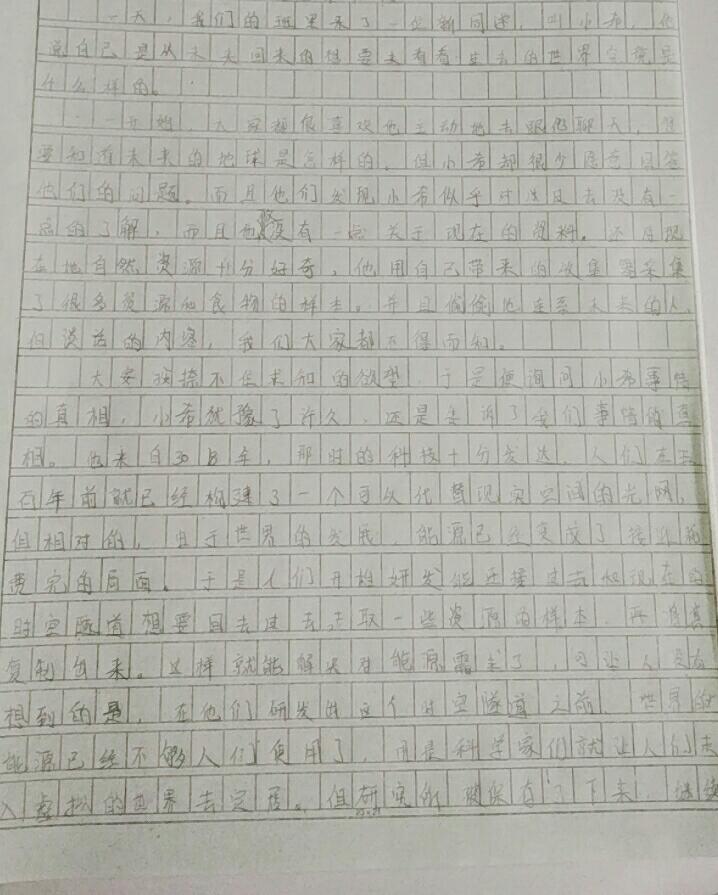 一天，我们的班里来了一位新同学，叫小希，他
说自己是从未来回来的想要来看看过去的世界究竟是
什么样的。
一开始，大家都很喜欢他主动地去跟他聊天，想
要知道未来的地球是怎样的。但小希却很少愿意回答
他们的问题。而且他们发现小希似乎对过去没有一
点的了解，而且也没有一点关于现在的资料。还对现
在地自然资源十分好奇，他用自己带来的收集器采集
了很多资源和食物的样本。并且偷偷地连系未来的人，
但谈话的内容，我们大家都不得而知。
大家按捺不住求知的欲望，于是便询问小希事情
的真相，小希犹豫了许久，还是告诉了我们事情的真
相。他来自30 年，那时的科技十分发达，人们在五
百年前就已经构建了一个可以代替现实空间的光网，
但相对的，由于世界的发展，能源已经变成了接近
费完的局面。于是人们开始研发能连接过去和现在的
时空隧道想要回去过去 取一些资源的样本，再将其
复制出来。这样就能解决对能源需求了，可让人没有
想到的是，在他们研发出这个时空隧道之前，世界的
能源已经不够人们使用了，于是科学家们就让人们进
入虚拟的世界去定居。但研究所被保存了下来，继续